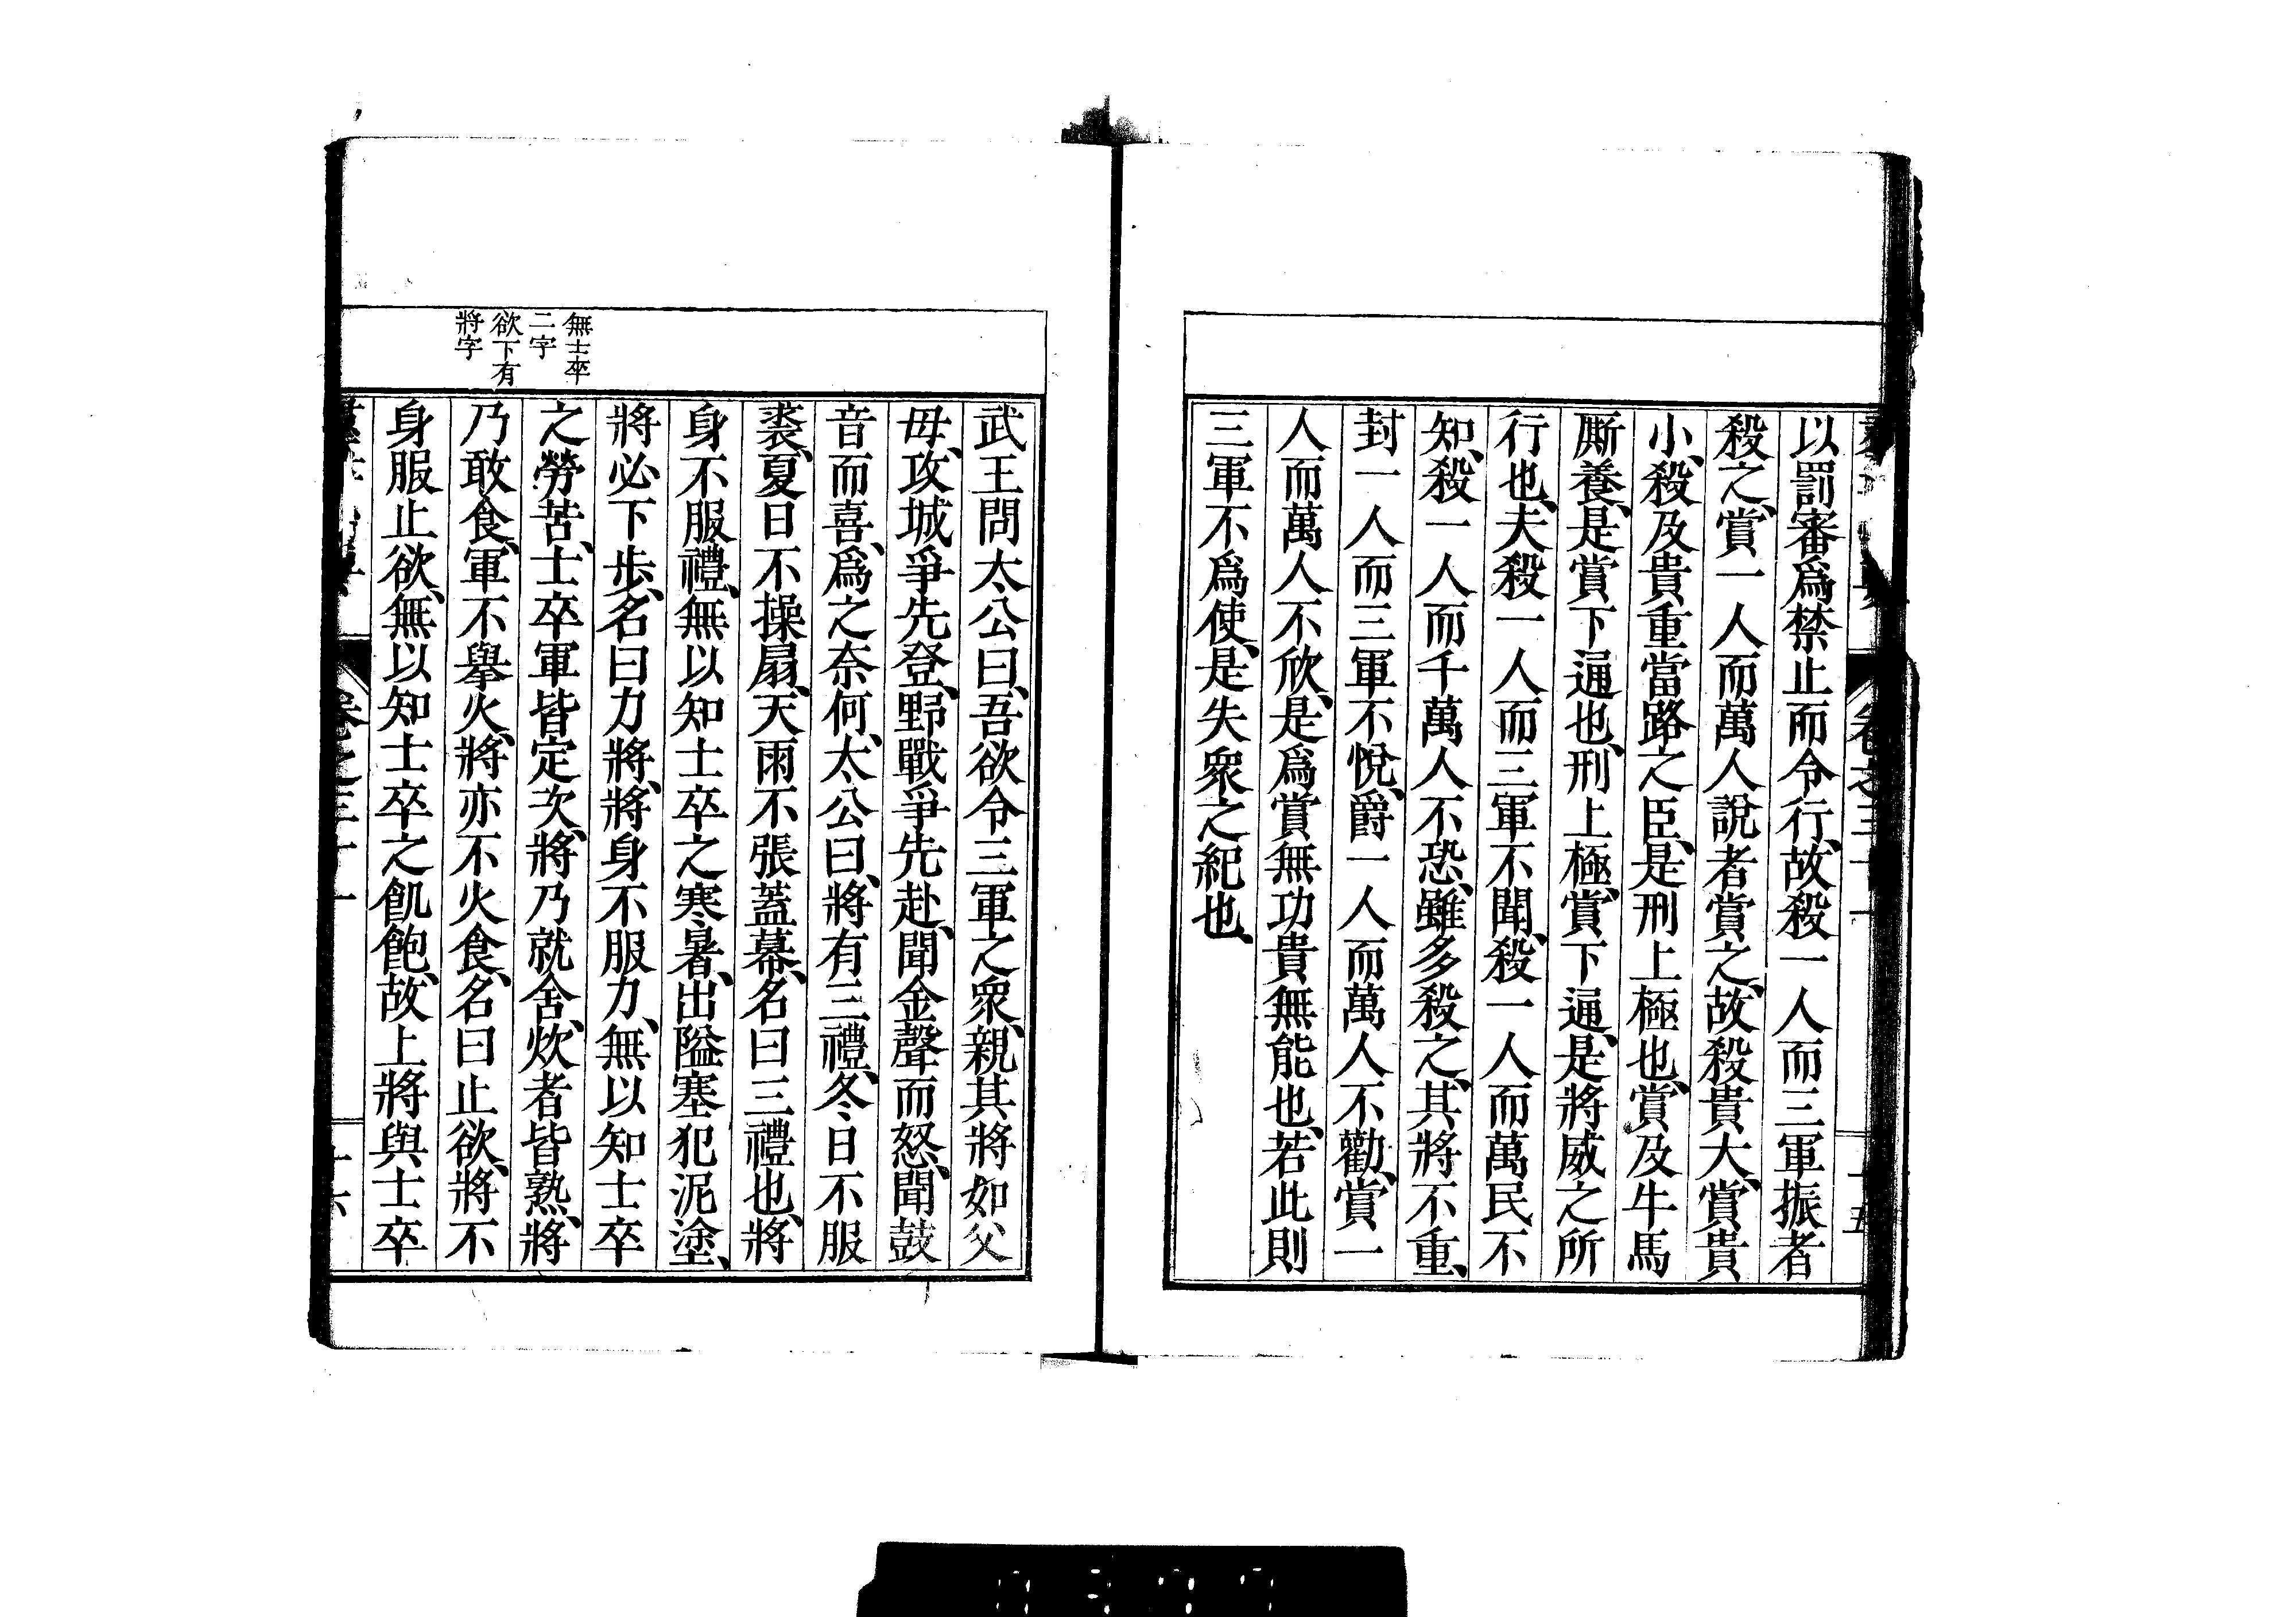 以罰審爲禁止而令行、故殺一人而三軍振者
殺之、賞一人而萬人說者賞之、故殺貴大、賞貴
小、殺及貴重當路之臣、是刑上極也、賞及牛馬
厮養、是賞下通也、刑上極、賞下通、是將威之所
行也、夫殺一人而三軍不聞、殺一人而萬民不
知、殺一人而千萬人不恐、雖多殺之、其將不重、
封一人而三軍不悅、爵一人而萬人不勸、賞一
人而萬人不欣、是爲賞無功貴無能也、若此則
三軍不爲使、是失衆之紀也、
武王問太公曰、吾欲令三軍之衆、親其將如父
母、攻城爭先登、野戰爭先赴、聞金聲而怒、聞鼓
音而喜、爲之奈何、太公曰、將有三禮、冬日不服
裘、夏日不操扇、天雨不張蓋幕、名曰三禮也、將
身不服禮、無以知士卒之寒暑、出隘塞犯泥塗、
將必下步、名曰力將、將身不服力、無以知士卒
之勞苦、士卒軍皆定次、將乃就舍、炊者皆熟、將
乃敢食、軍不擧火、將亦不火食、名曰止欲、將不
身服止欲、無以知士卒之飢飽、故上將與士卒
無士卒
二字
欲下有
將字
卷之三十一